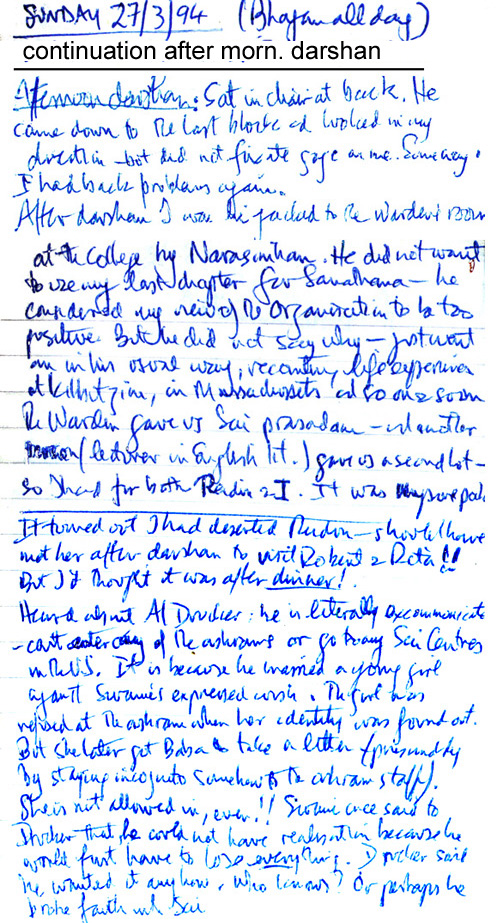 SUNDAY 27/3/94 (Bhajan all day)
continuation after morn. darshan
Afternoon darshan: Sat in chair at back. He
came down to the last blocks ad looked in my
direction - but did not fixate gaze on me. Someway.
I had back problems again.
After darshan I was hi-jacked to the Warden's room
at the College by Narasimhan. He did not want
to use my last chapter for Sanathana - he
considered my view of the Organisation to be too
positive. But he did not say why - just went
on in his usual way, recounting life experiences
at, in Massachusetts ad so on & soon
The Warden gave us Sai prasadam - and another
(lecturer in English lit.) gave us a second lot -
so I had for both Reidun & I. It was
It turned out I had deserted Reidun - should have
met her after darshan to visit Robert & Rita!!
But I'd thought it was after dinner!
Heard about Al Drucker: he is literally excommunicate
- cant enter any of the ashrams or go to any Sai Centres
in the US. It is because he married a young girl
against Swami's expressed wish. The girl was
refused at the ashram when her identity was found out.
But she later got Baba to take a letter (presumably
by staying incognito somehow to the ashram staff).
She is not allowed in, ever!! Swami once said to
Drucker that he could not have realisation because he
would first have to lose everything. Drucker said
he wanted it anyhow. Who knows? Or perhaps he
broke faith with Sai